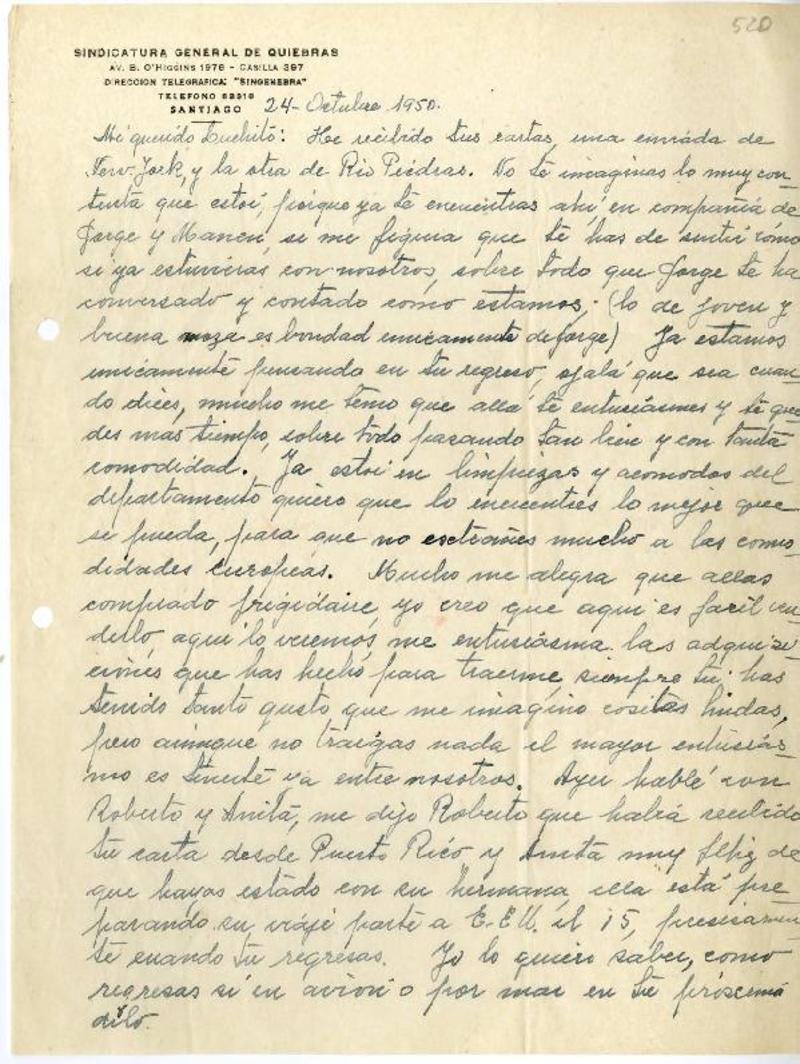 520
SINDICATURA GENERAL DE QUIEBRAS
AV. B. O'HIGGINS 1976 - CASILLA 397
DIRECCION TELEGRAFICA: "SINGENEBRA"
TELEFONO 82316
SANTIAGO 24-Octubre 1950.
Mi querido Luchito: He recibido tus cartas, una enviada de
New-York, y la otra de Rio Piedras. No te imaginas lo muy con-
tenta que estoi, porque ya te encuentras ahi en compañia de
Jorge y Manen, se me figura que te has de sentir cómo
si ya estuvieras con nosotros, sobre todo que Jorge te ha
conversado y contado como estamos; (lo de joven y
buena moza es bondad unicamente de Jorge) Ya estamos
unicamente pensando en tu regreso, ojalá que sea cuan-
do dices, mucho me temo que allá te entusiasmes y te que-
des mas tiempo, sobre todo pasando tan bien y con tanta
comodidad. Ya estoi en limpiezas y acomodos del
departamento quiero que lo encuentres lo mejor que
se pueda, para que no extrañes mucho a las como-
didades Européas. Mucho me alegra que allas
comprado frigidaire, yo creo que aqui es facil ven-
derlo, aqui lo veremos, me entusiásma las adquisi-
ciones que has hecho para traerme, siempre tú has
tenido tanto gusto que me imagino cositas lindas,
pero aúnque no traigas nada el mayor entusiás-
mo es tenerte ya entre nosotros. Ayer hablé con
Roberto y Anita, me dijo Roberto que habia recibido
tu carta desde Puerto Rico y Anita muy feliz de
que hayas estado con su hermana, ella está pre-
parando su viaje parte a E.E.U. el 15, precisamen-
te cuando tú regresas. Yo lo quiero saber, como
regresas si en avion o por mar en tu próscima
dilo.